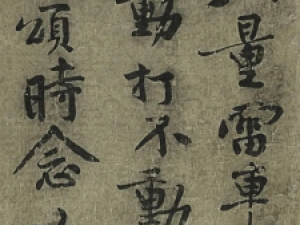 量雷車
動打不動
頌時念